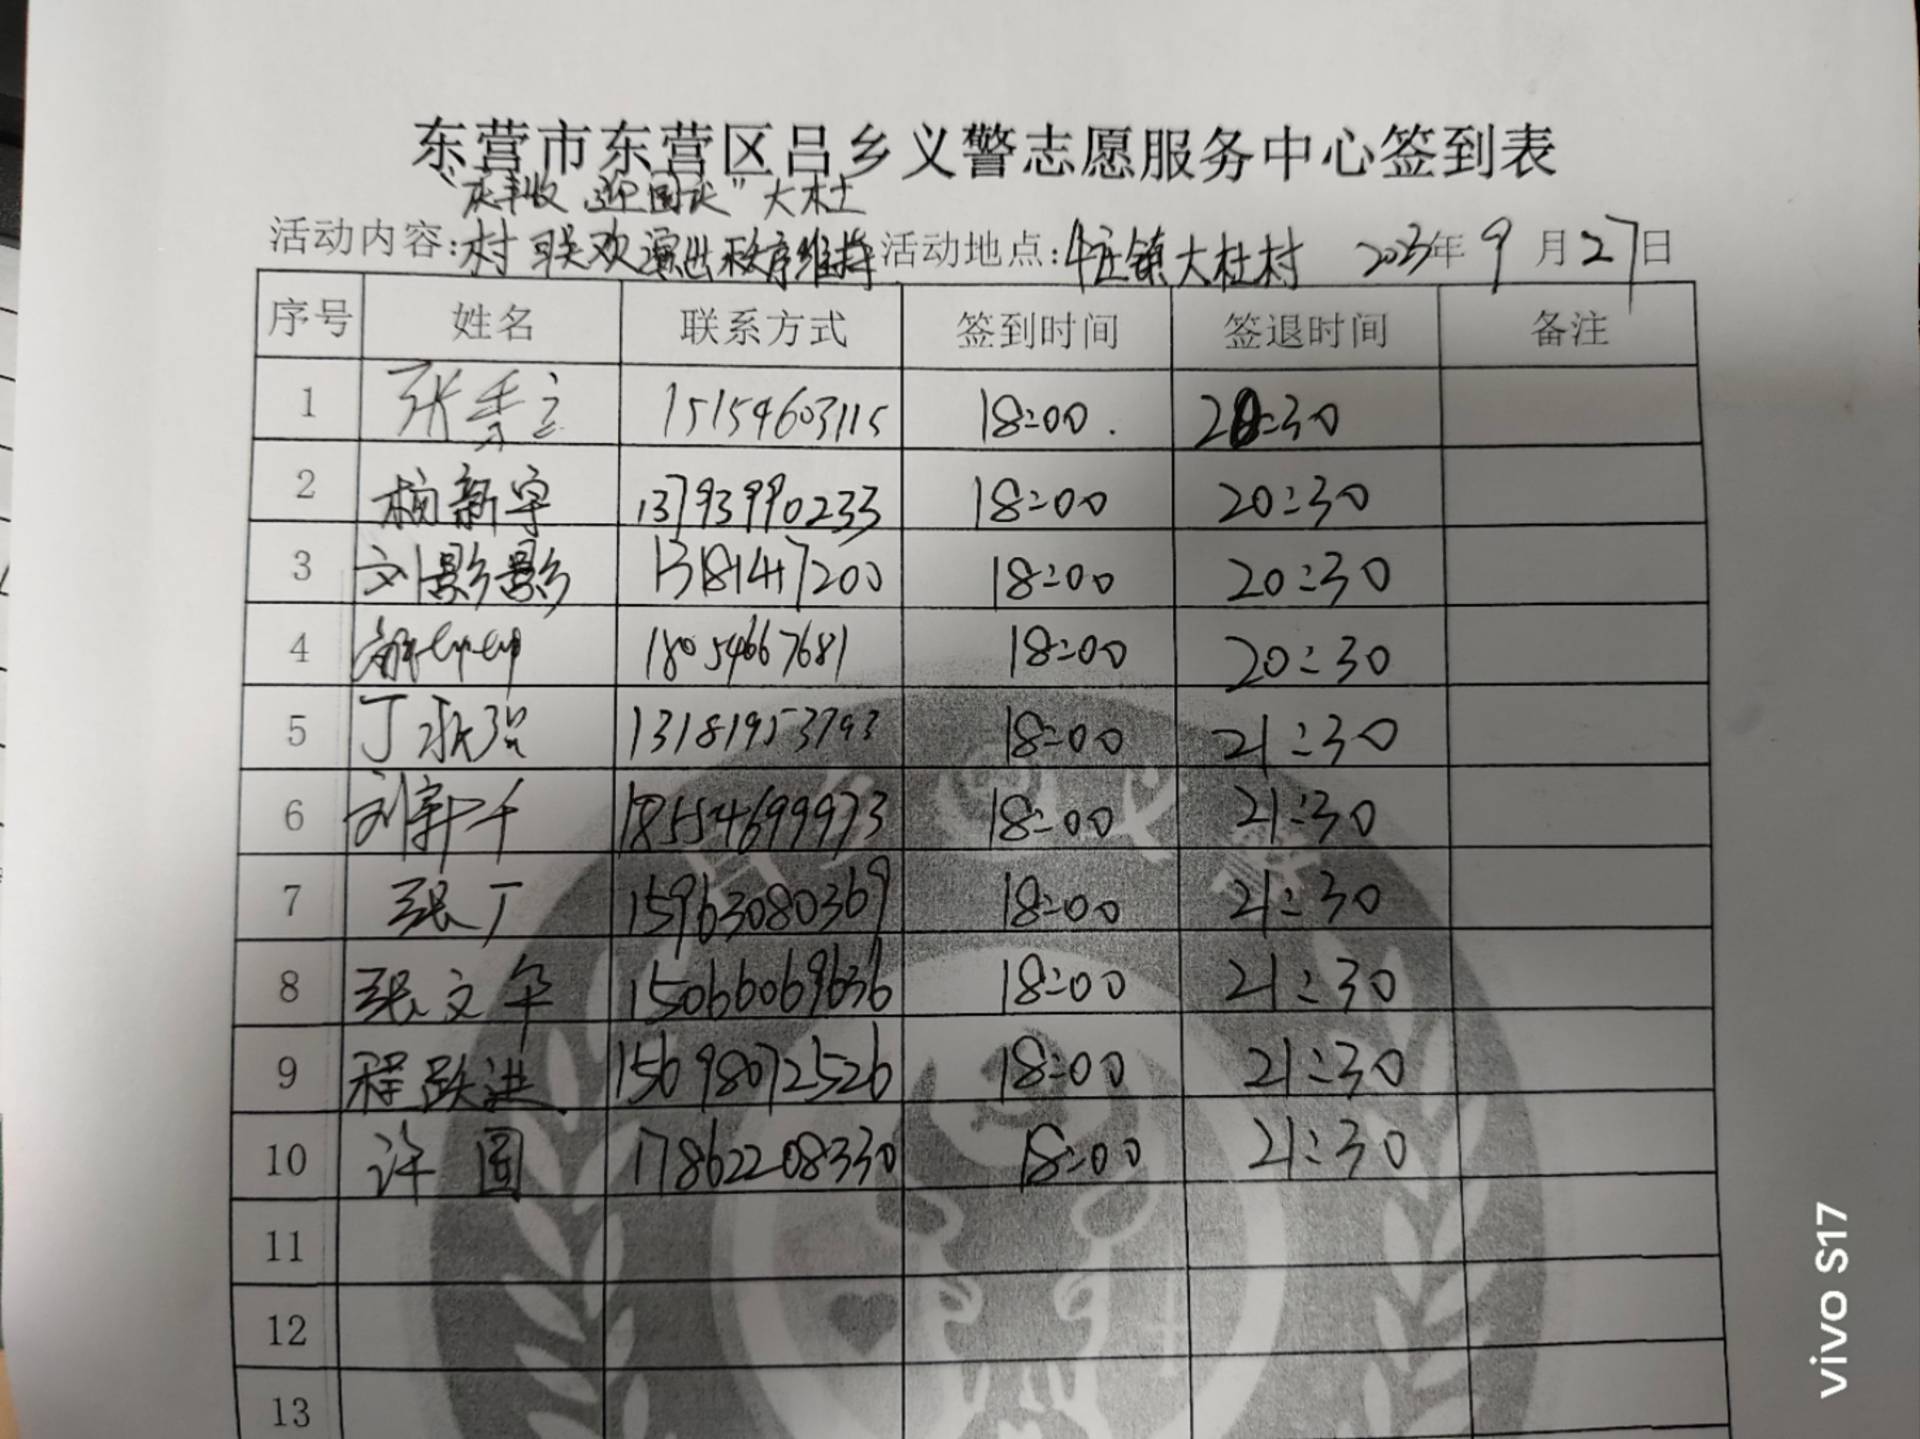 东营市东营区吕乡义警志愿服务中心签到表
“庆丰收,迎国庆”大杜
活动内容:村联欢演出秩序维持 活动地点:牛庄镇大杜村 2023年9月27日
序号 姓名 联系方式 签到时间 签退时间 备注
1 张秀立 15154603115 18:00. 20:30
2 杨新宇 13793990233 18:00 20:30
3 刘影影 1318147200 18:00 20:30
4 18054667681 18:00 20:30
5 丁永贺 13181953793 18:00 21:30
6 刘新千 18554699973 18:00 21:30
7 张丁 15963080369 18:00 21:30
8 张文华 15066069636 18:00 21:30
9 程跃进 15698072526 18:00 21:30
10 许圆 17862208330 18:00 21:30
11
12
13
吕乡义警
vivo S17